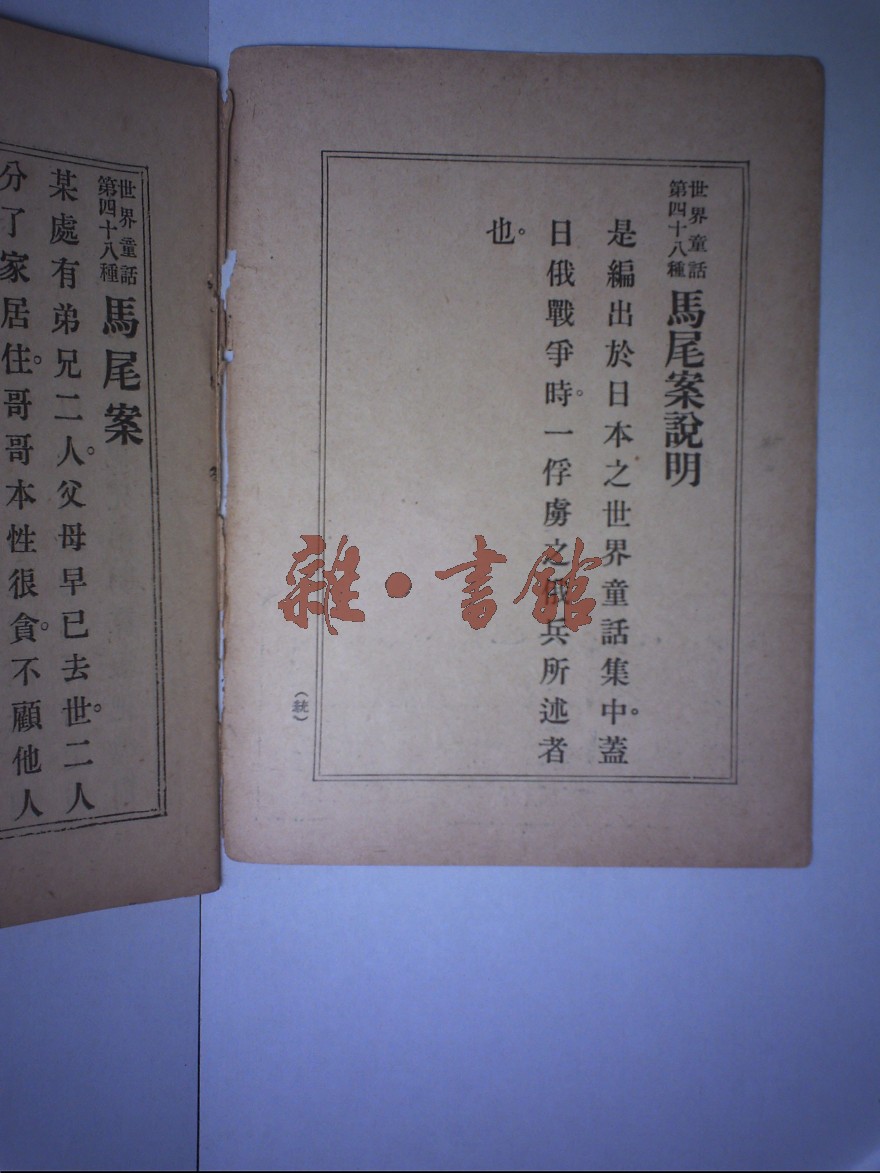 世界童話
第四十八種
馬尾案說明
是編出於日本之世界童話集中。蓋
日俄戰爭時。一俘虜之俄兵所述者
也。
(統)
世界童話
第四十八種
馬尾案
某處有弟兄二人。父母早已去世。二人
分了家居住。哥哥本性很貪。不顧他人
雜·書館